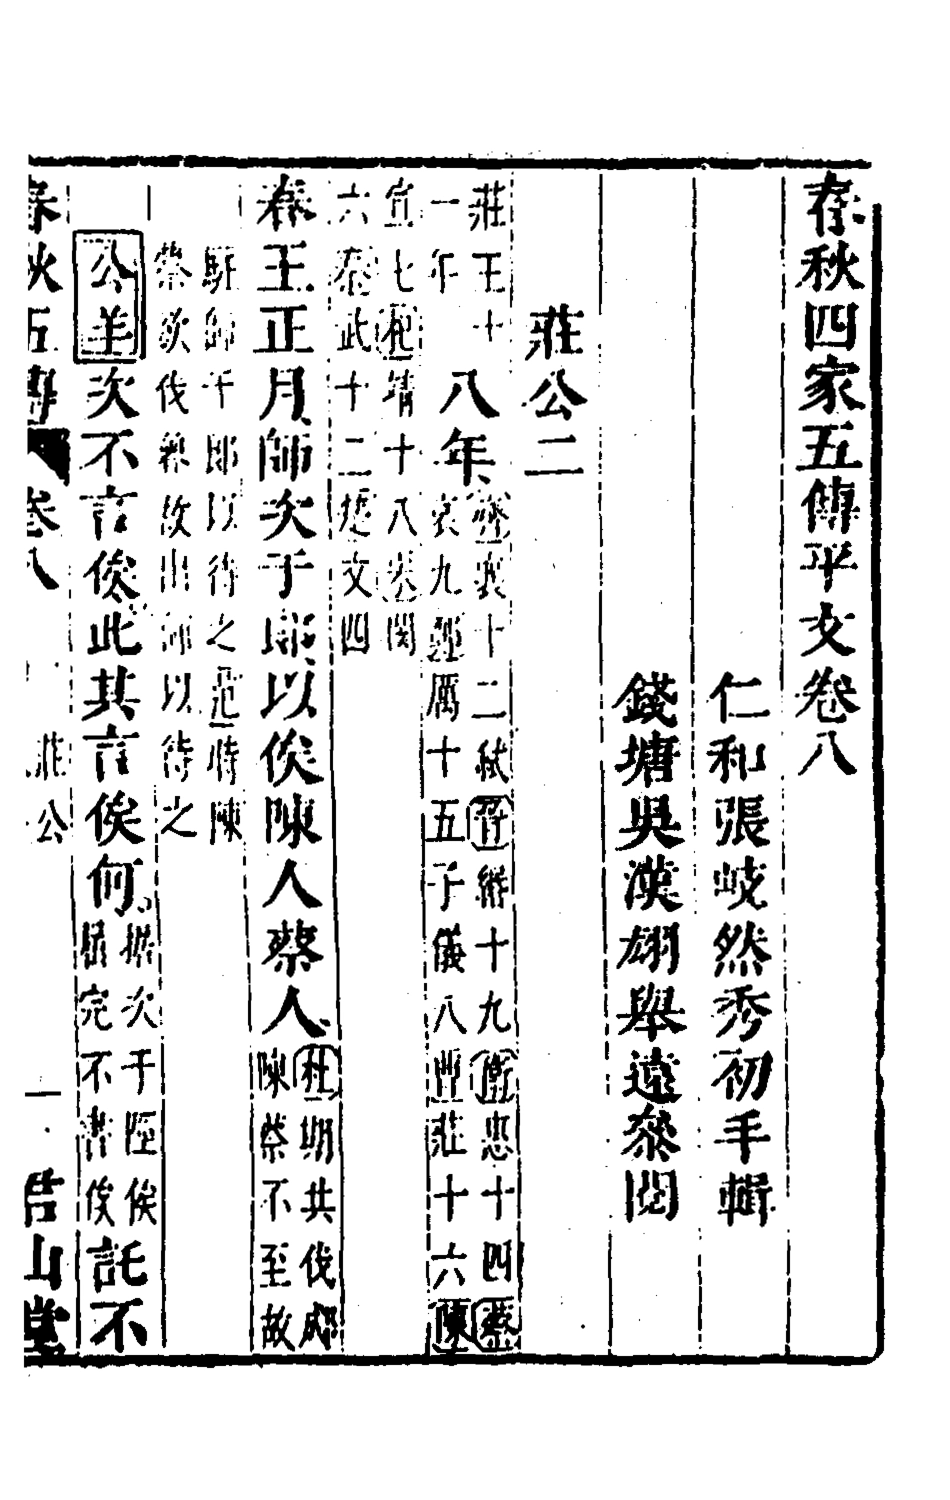 春秋四家五傳平文卷八
仁和張岐然秀初手輯
錢塘吳漢翊舉遠叅閱
莊公二
莊王十一年
八年
齊襄十二弒晉緡十九衛惠十四蔡
哀九鄭厲十五子儀八曹莊十六陳
宣七杞靖十八宋閔
六秦武十二楚文四
春王正月師次于郎以俟陳人蔡人
杜期共伐郕
陳蔡不至故
駐師于郎以待之范時陳
蔡欲伐魯故出師以待之
公羊次不言俟此其言俟何
據次于陘俟
屈完不書俟
託不
春秋五傳 卷八
莊公
一
山堂